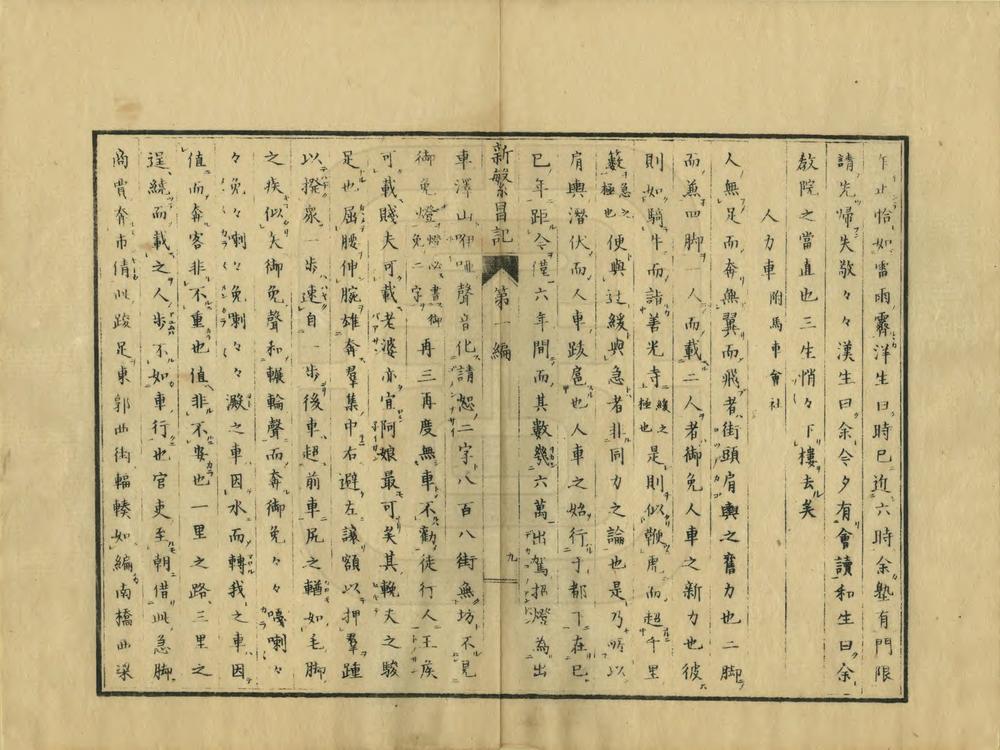 乍止恰如雷雨霽洋生曰時已近六時余塾有門限
請先歸失敬々々漢生曰余今夕有會讀和生曰余
教院之當直也三生悄々下樓去矣
人力車 附馬車會社
人無足而奔無翼而飛者街頭肩輿之奮力也二脚
而兼四脚一人而載二人者御免人車之新力也彼
則如騎牛而詣善光寺緩之極也是則似鞭虎而超千里
藪急之極也便輿過緩輿急者非同力之論也是乃所以
肩輿潛伏而人車跋扈也人車之始行于都下在己
巳年距今僅六年間而其數幾六萬出駕招燈為出
新繁昌記 第一編 九
車澤山咿啞聲音化請恕二字八百八街無坊不見
御免燈燈必書御免二字再三再度無車不勸徒行人王侯
可載賤夫可載老婆亦宜阿娘最可矣其輓夫之駿
足也屈腰伸腕雄奔羣集中右避左讓額以押羣踵
以撥衆一歩速自一歩後車超前車尻之輶如毛脚
之疾似矢御免聲和輾輪聲而奔御免々々嘎喇々
々免々喇々免喇々濺之車因水而轉我之車因
値而奔客非不重也値非不安也一里之路三里之
逕繞而載之人歩不如車行也官吏至朝借此急脚
商賈奔市倩此踆足東郭西街輻輳如編南橋西梁